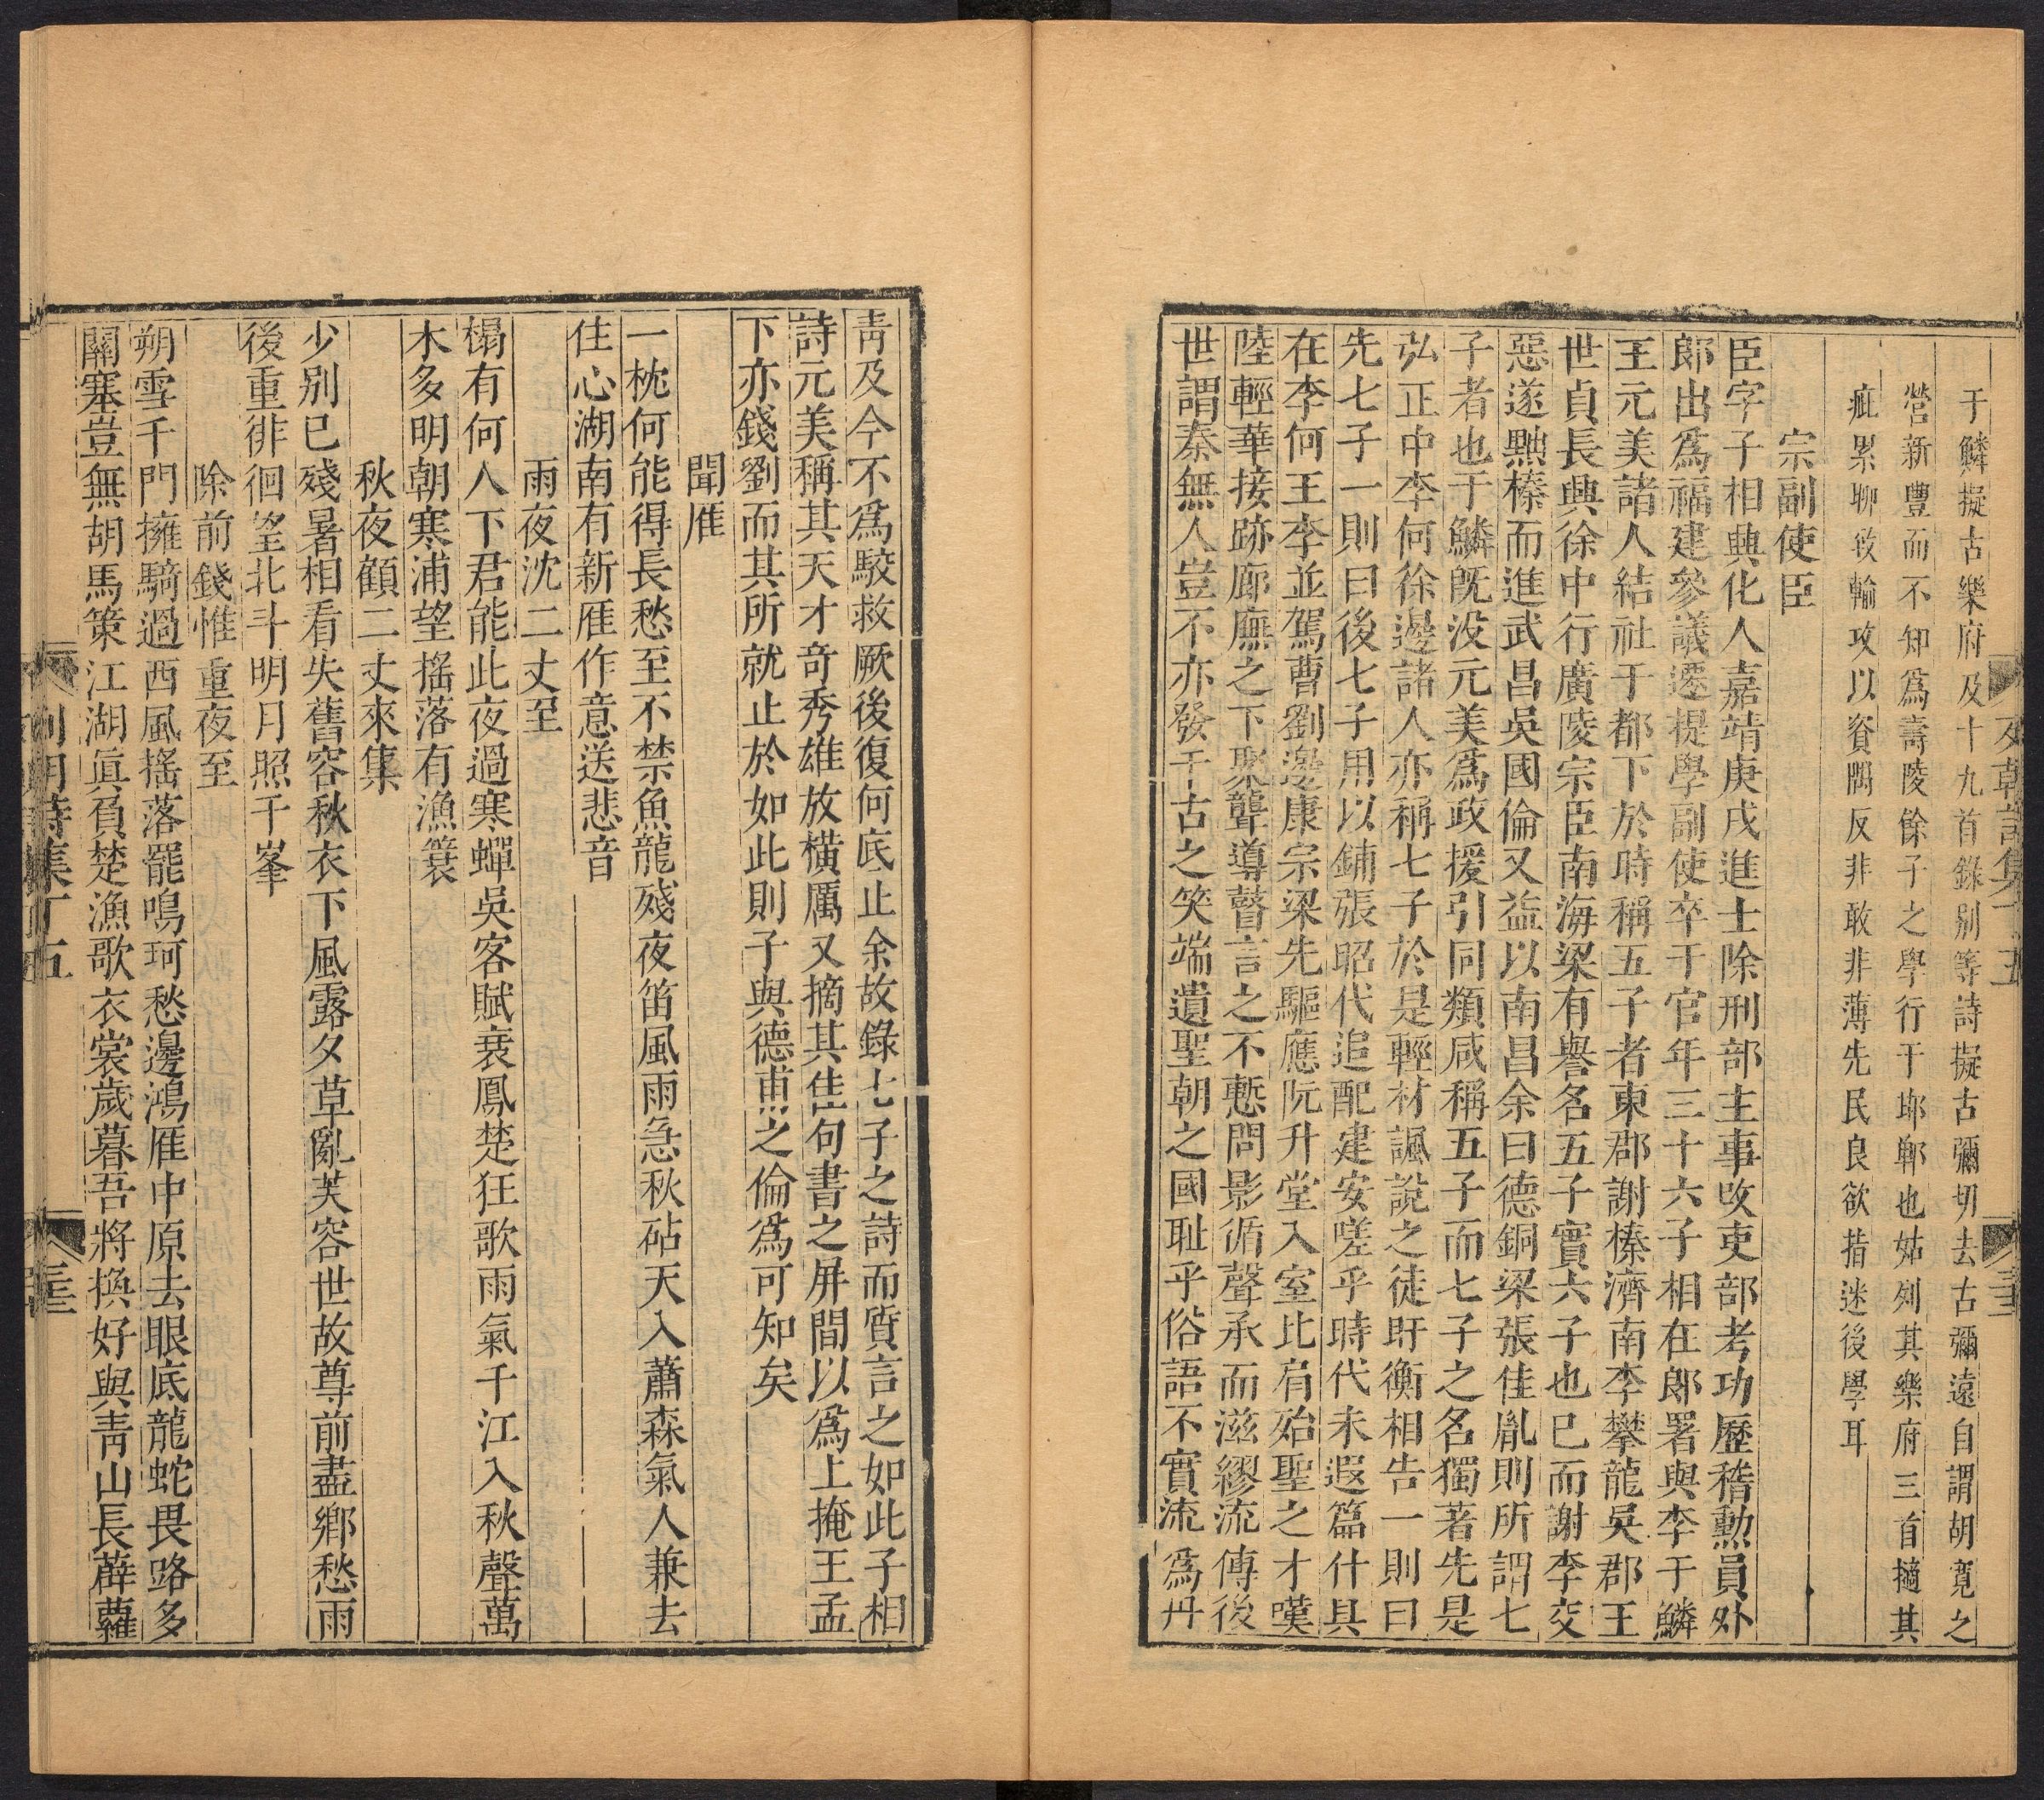 于鱗擬古樂府及十九首錄别等詩擬古彌切去古彌遠自謂胡寛之
營新豐而不知爲壽陵餘子之學行于邯鄲也姑列其樂府三首摘其
疵累聊攷輸攻以資隅反非敢非薄先民良欲指迷後學耳
宗副使臣
臣字子相興化人嘉靖庚戌進士除刑部主事改吏部考功歷稽勳員外
郎出爲福建參議遷提學副使卒于官年三十六子相在郎署與李于鱗
王元美諸人結社于都下於時稱五子者東郡謝榛濟南李攀龍吳郡王
世貞長興徐中行廣陵宗臣南海梁有譽名五子實六子也已而謝李交
惡遂黜榛而進武昌吳國倫又益以南昌余曰德銅梁張佳胤則所謂七
子者也于鱗旣没元美爲政援引同類咸稱五子而七子之名獨著先是
弘正中李何徐邊諸人亦稱七子於是輕材諷說之徒盱衡相告一則曰
先七子一則曰後七子用以鋪張昭代追配建安嗟乎時代未遐篇什具
在李何王李並駕曹劉邊康宗梁先驅應阮升堂入室比肩殆聖之才嘆
陸輕華接跡廊廡之下聚聾導瞽言之不慙問影循聲承而滋繆流傳後
世謂秦無人豈不亦發千古之笑端遺聖朝之國耻乎俗語不實流爲丹
青及今不爲駮救厥後復何底止余故錄七子之詩而質言之如此子相
詩元美稱其天才奇秀雄放橫厲又摘其佳句書之屏間以爲上掩王孟
下亦錢劉而其所就止於如此則子與德甫之倫爲可知矣
聞雁
一枕何能得長愁至不禁魚龍殘夜笛風雨急秋砧天入蕭森氣人兼去
住心湖南有新雁作意送悲音
雨夜沈二丈至
榻有何人下君能此夜過寒蟬吳客賦衰鳳楚狂歌雨氣千江入秋聲萬
木多明朝寒浦望搖落有漁簑
秋夜顧二丈來集
少别已殘暑相看失舊容秋衣下風露夕草亂芙容世故尊前盡鄉愁雨
後重徘徊望北斗明月照千峯
除前錢惟重夜至
朔雪千門擁騎過西風搖落罷鳴珂愁邊鴻雁中原去眼底龍蛇畏路多
關塞豈無胡馬策江湖眞負楚漁歌衣裳歲暮吾將換好與靑山長薜蘿
列朝詩集丁五